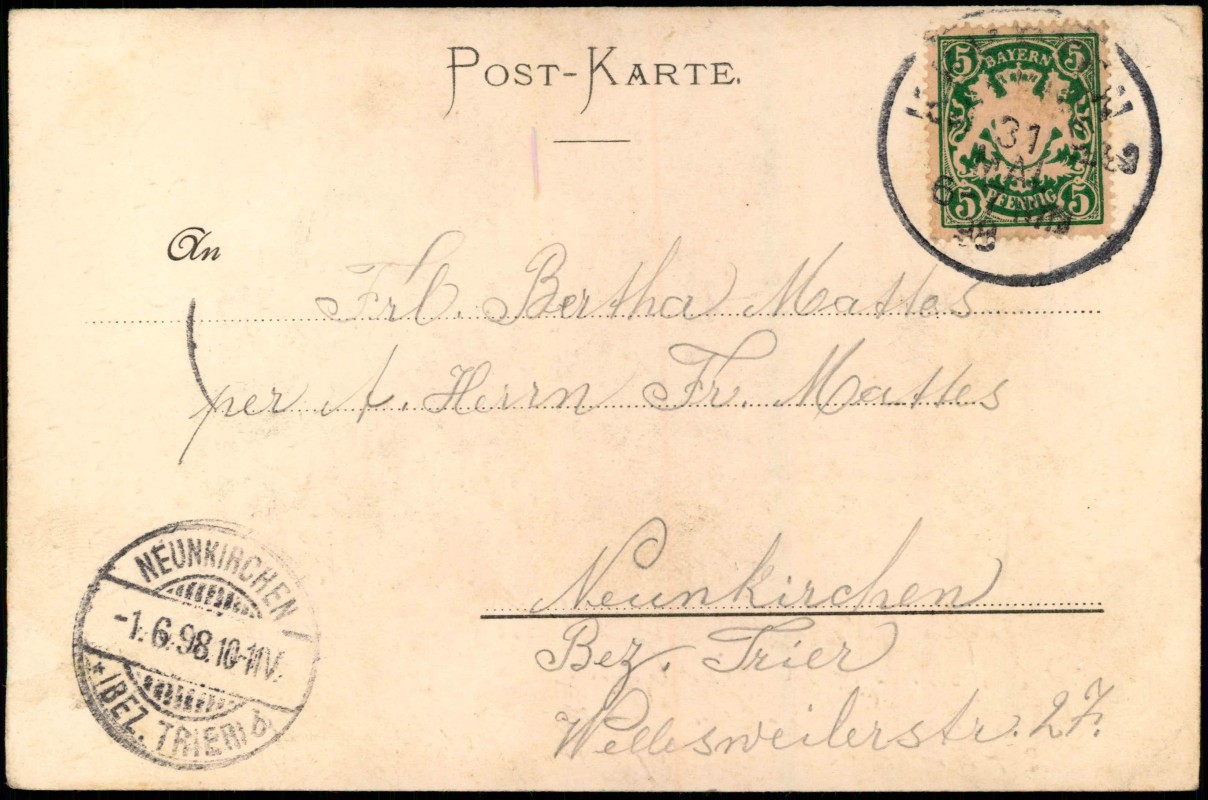 POST-KARTE.
5 BAYERN 5
31
MAI
5 PFENNIG 5
98
An
Frl. Bertha Mattes
per A. Herrn Fr. Mattes
Neunkirchen
Bez. Trier
Wellesweilerstr. 27.
NEUNKIRCHEN
-1.6.98.10-11V.
* (BEZ. TRIER) b